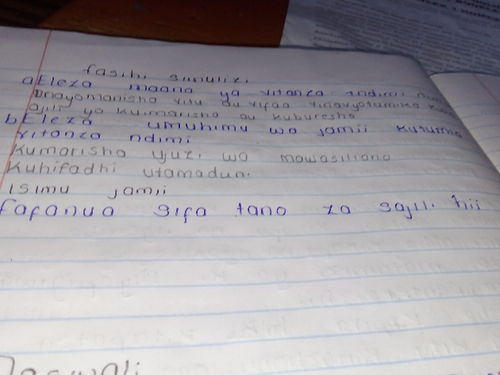 fasihi simulizi
a Eleza maana ya vitanza ndimi
Dinayomanisha vitu au vifaa vinavyotumika
ajili ya kuimarisha au kuboresha
b Eleza umuhimu wa jamii kutumia
vitanza ndimi
Kumarisha ujuzi wa mawasiliano
Kuhifadhi utamaduni.
isimu jamii
fafanua sifa tano za sajili hii